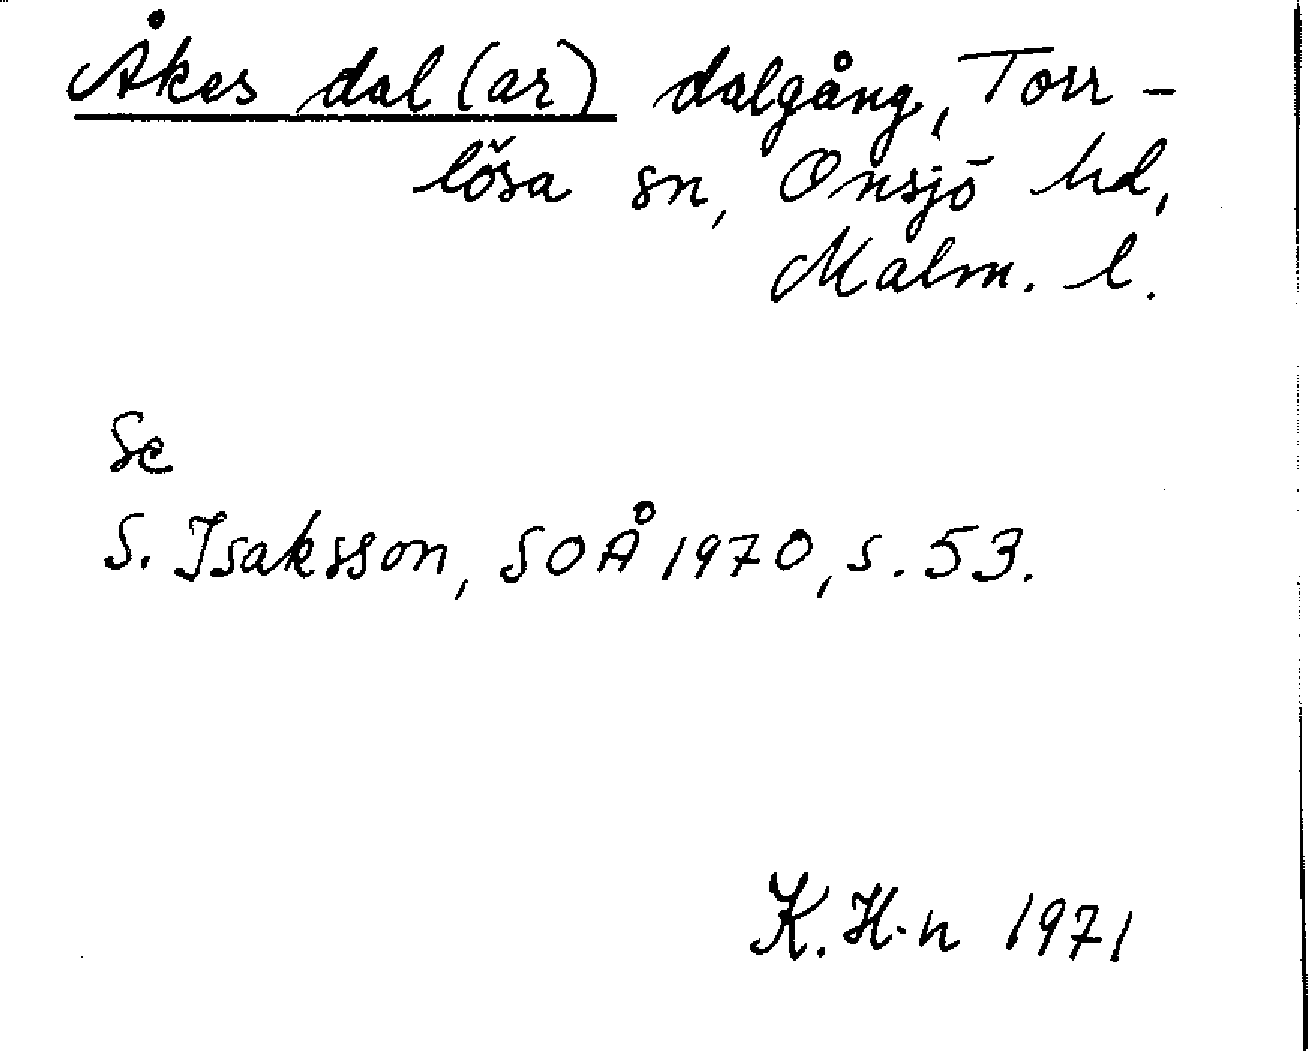 Åkes dal (ar) dalgång, Torr-
lösa sn, Onsjö hd,
Malm. l.
Se
S. Isaksson, SOÅ 1970, s. 53.
K. H-n 1971